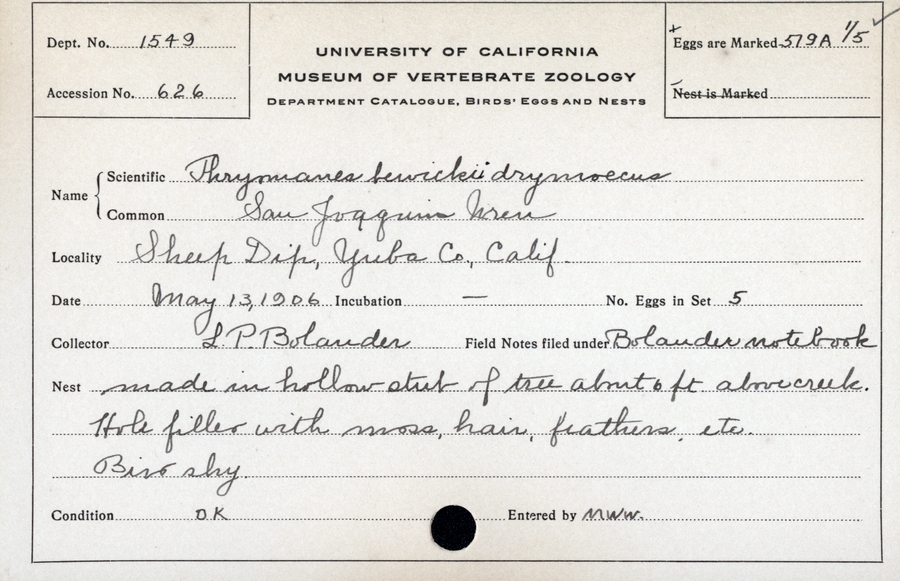 Dept. No. 1549
Accession No. 626
UNIVERSITY OF CALIFORNIA
MUSEUM OF VERTEBRATE ZOOLOGY
DEPARTMENT CATALOGUE, BIRDS' EGGS AND NESTS
+ Eggs are Marked 519A 1/5 ✓
Nest is Marked
Name
Scientific Thryomanes bewickii drymoecus
Common San Joaquin Wren
Locality Sheep Dip, Yuba Co., Calif.
Date May 13, 1906 Incubation — No. Eggs in Set 5
Collector L. P. Bolander Field Notes filed under Bolander notebook
Nest made in hollow stub of tree about 6 ft above creek.
Hole filled with moss, hair, feathers, etc.
Bird shy.
Condition OK Entered by MWW.